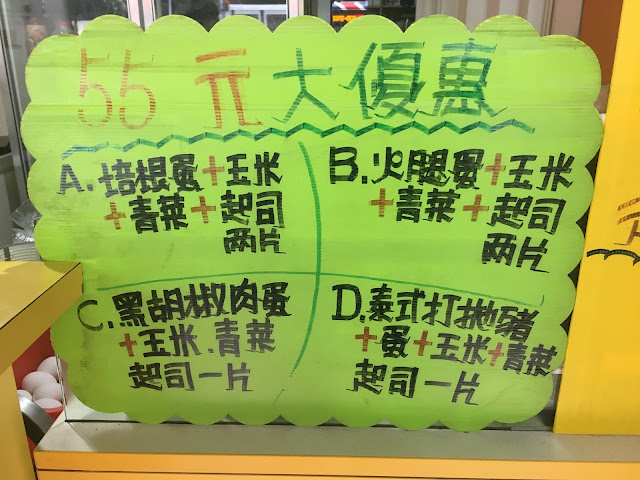 55元大優惠
A.培根蛋+玉米
+青菜+起司
兩片
B.火腿蛋+玉米
+青菜+起司
兩片
C.黑胡椒肉蛋
+玉米.青菜
起司一片
D.泰式打拋豬
+蛋+玉米+青菜
起司一片